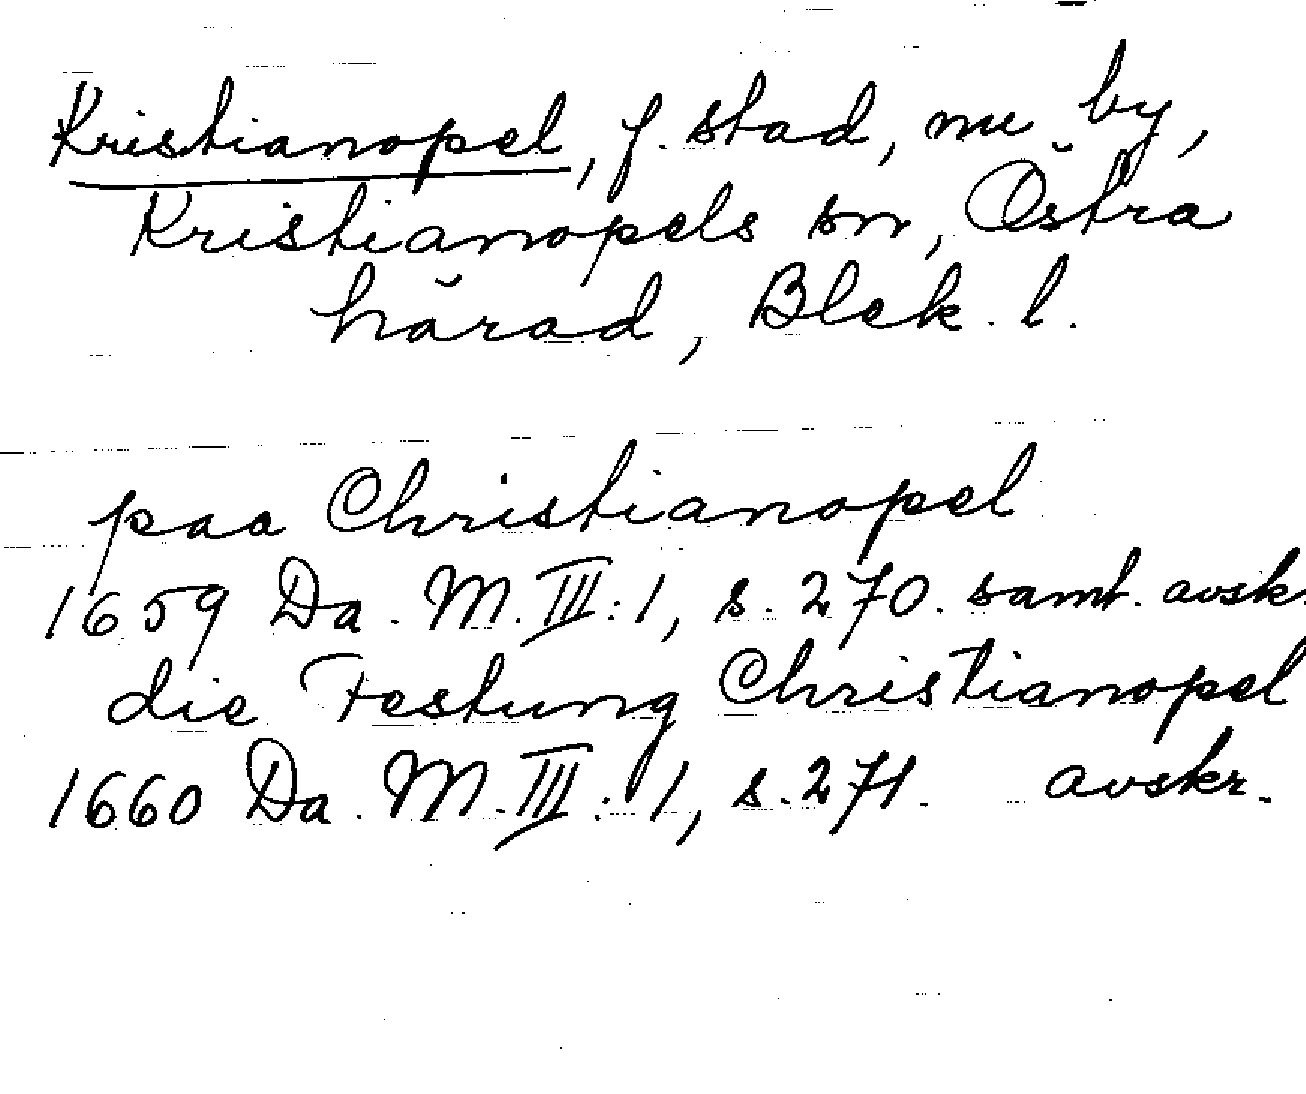 Kristianopel, f. stad, nu by,
Kristianopels sn, Östra
härad, Blek. l.
paa Christianopel
1659 Da. M. III:1, s. 270. samt. avsk.
die Festung Christianopel
1660 Da. M. III:1, s. 271. avskr.